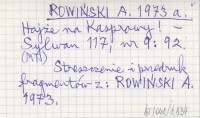 ROWIŃSKI A. 1973 a.
Hajże na Kasprowy! —
Sylwan 117, nr 9: 92.
(MTI)
Streszczenie i przedruk
fragmentów z: ROWIŃSKI A.
1973.